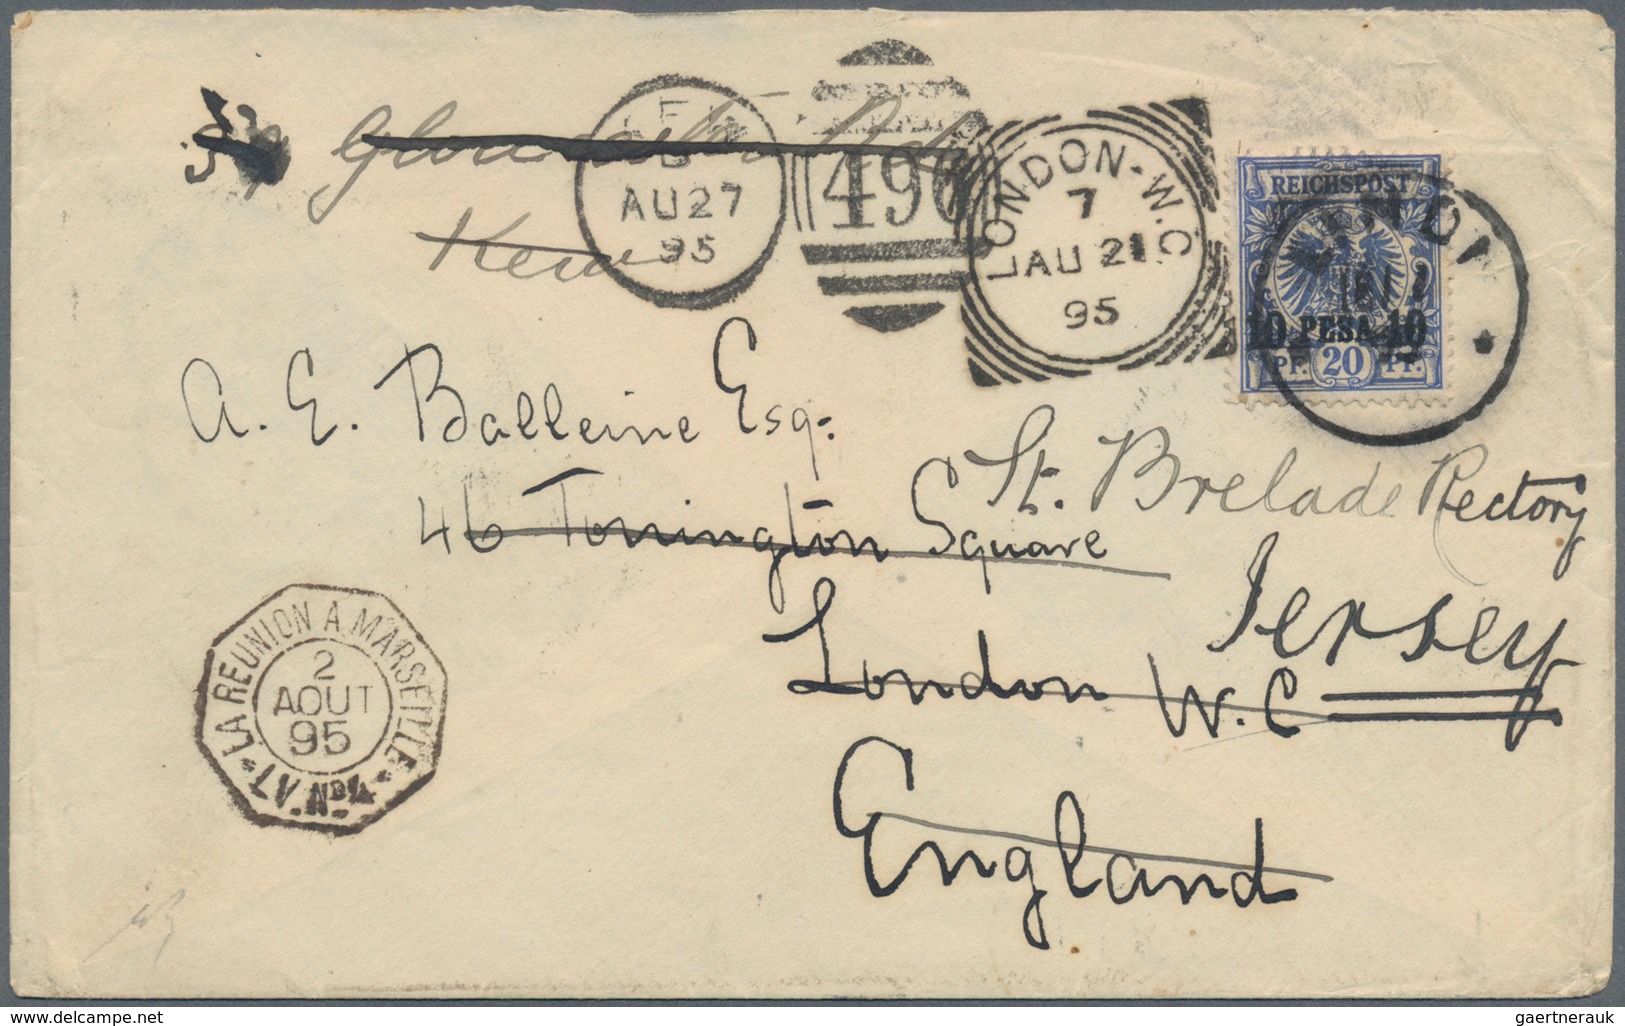 Gloucester Rd
Kew
B
AU 27
95
496
LONDON-W.C.
7
AU 21
95
REICHSPOST
10 PESA 10
PF. 20 PF.
LINDI
A. E. Balleine Esq.
46 Torrington Square
London W.C
England
St. Brelade Rectory
Jersey
LA REUNION A MARSEILLE
2
AOUT
95
gaertnerauk